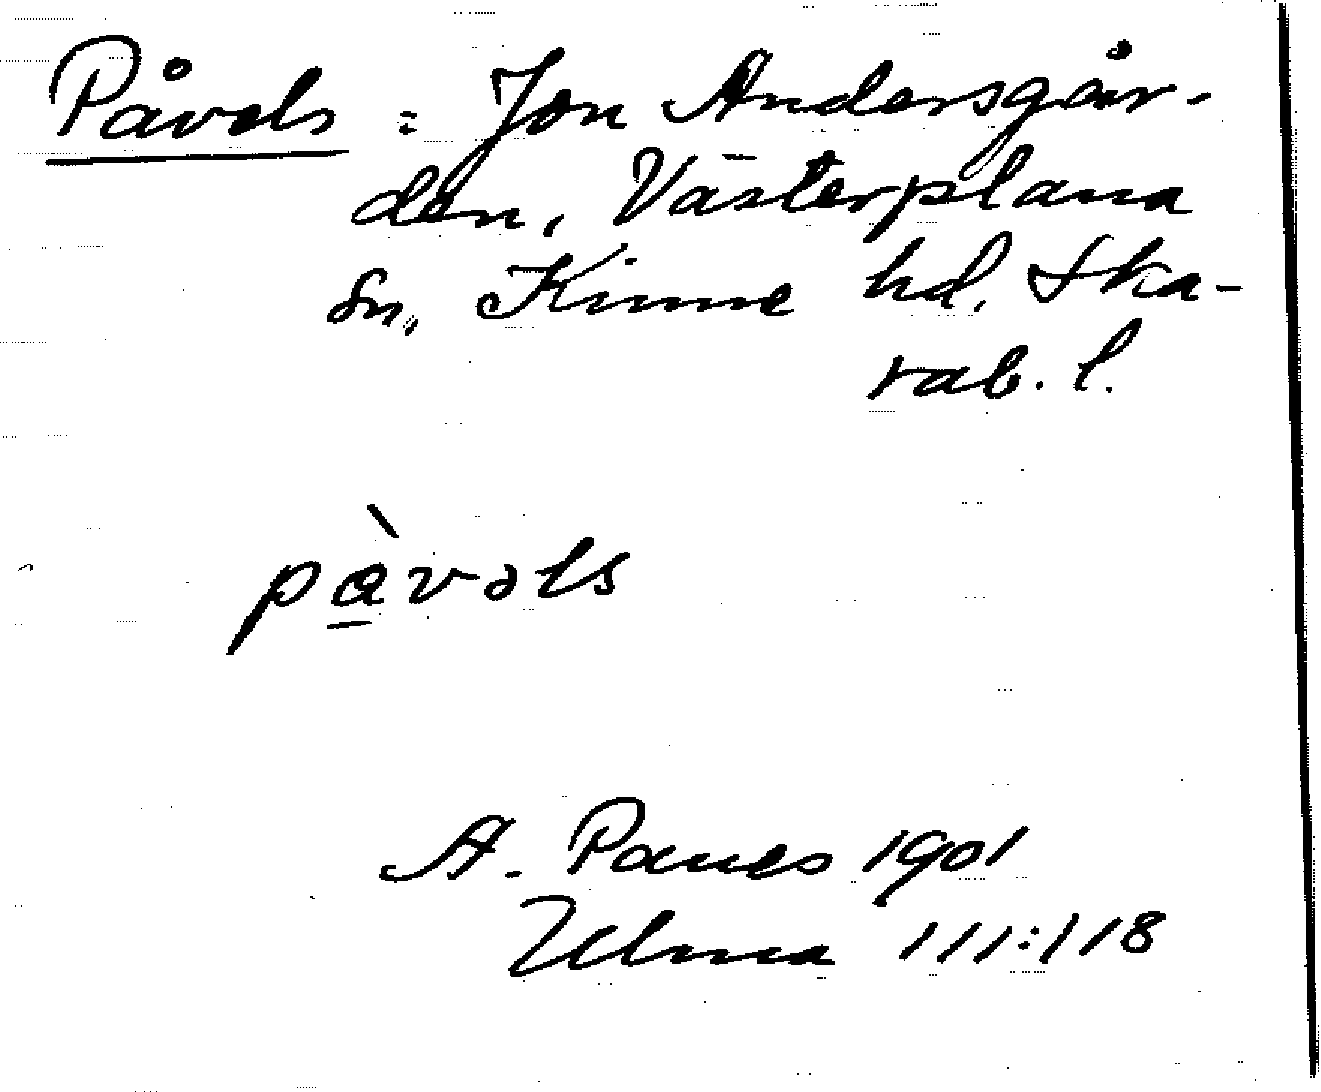 Påvels = Jon Andersgår-
den, Västerplana
sn, Kinne hd. Ska-
rab. l.
pàvəls
A. Panes 1901
Ulma 111:118